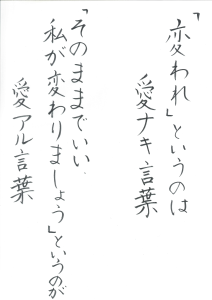 「変われ」というのは
愛ナキ言葉
「そのままでいい
私が変わりましょう」というのが
愛アル言葉